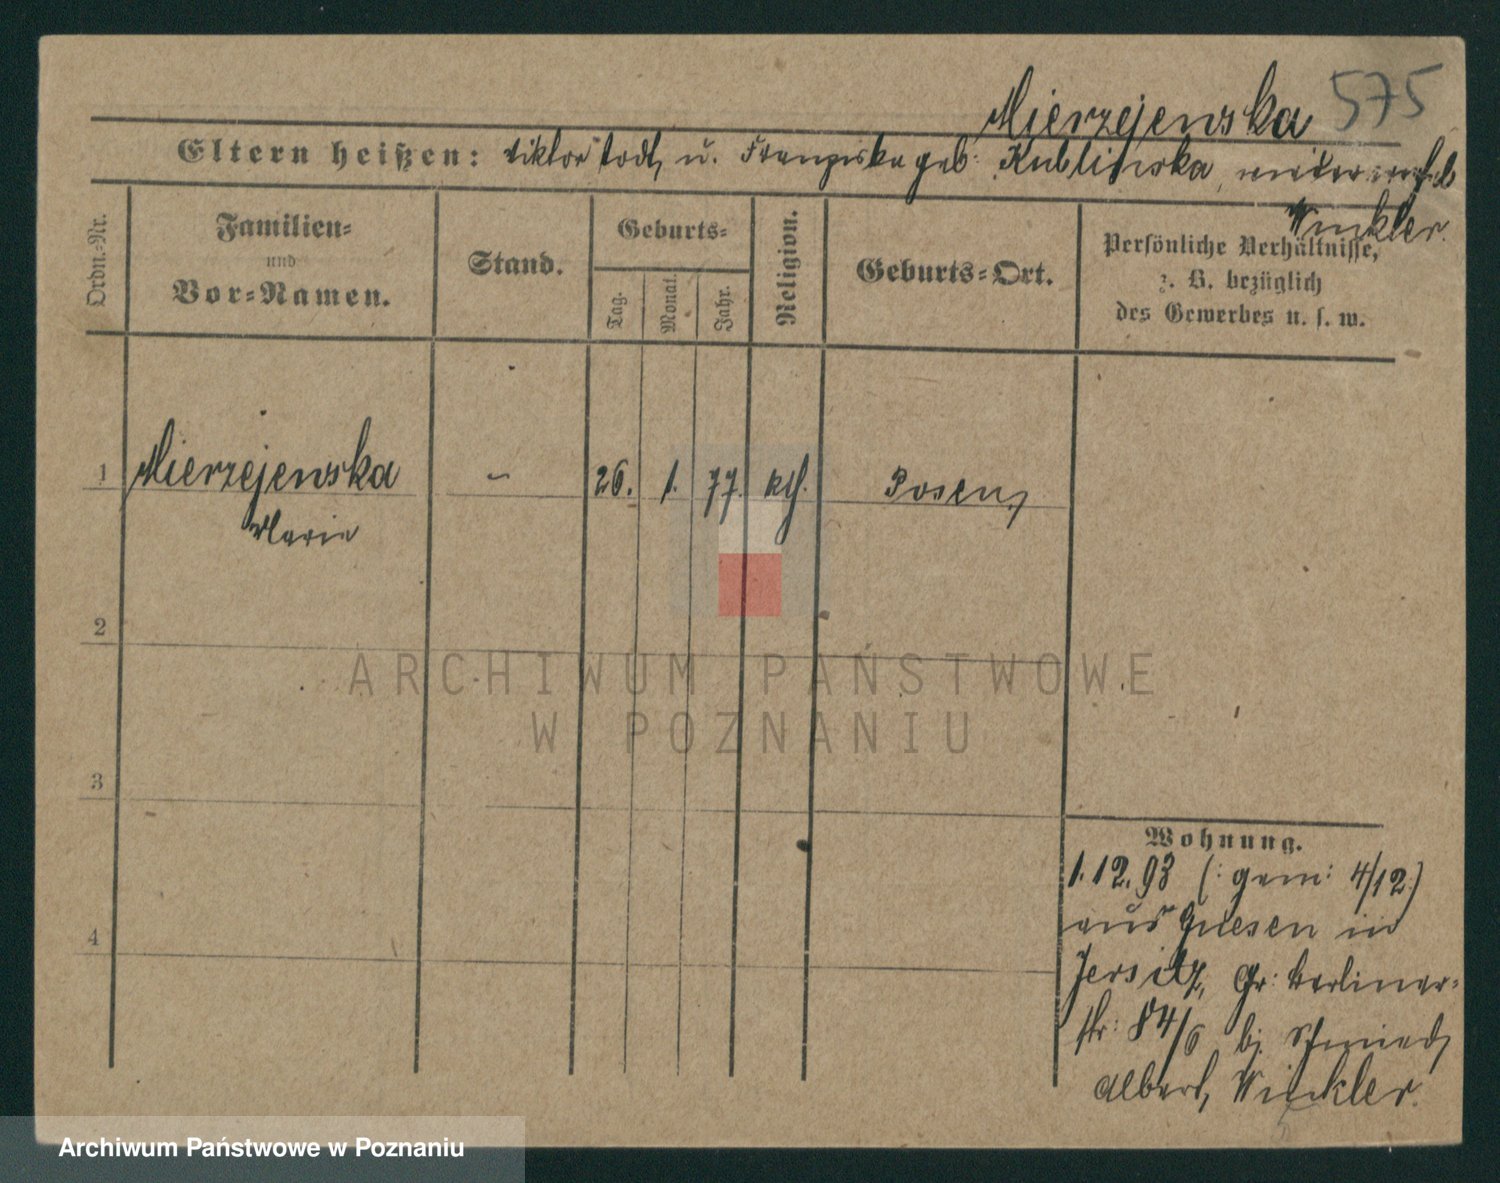 Mierzejewska 575
Eltern heißen: Viktor todt, u. Franziska geb: Kublinska, wiederverehel.
Winkler.
Ordn.-Nr.
Familien-
und
Vor-Namen.
Stand.
Geburts-
Tag.
Monat.
Jahr.
Religion.
Geburts-Ort.
Persönliche Verhältnisse,
z. B. bezüglich
des Gewerbes u. s. w.
1 Mierzejewska - 26. 1. 77. kth. Posen,
Marie
2
ARCHIWUM PAŃSTWOWE
W POZNANIU
3
Wohnung.
1.12.93 (: gem: 4/12.)
aus Gnesen in
4
Jersitz, Gr: Berliner-
str: 84/6 bj. Schmied,
Albert, Winkler.
Archiwum Państwowe w Poznaniu